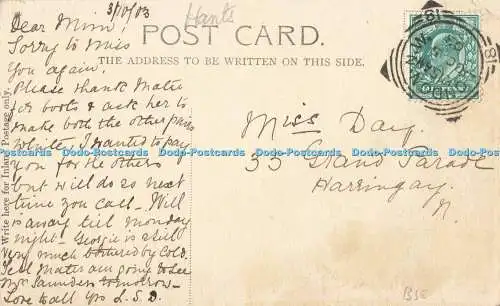 3/10/03
Hants
Dear Mim
Sorry to Miss
You again.
Please thank Mater
for boots & ask her to
make both the other pairs
whole. I wanted to pay
you for the others
but will do so next
time you call – Will
is away till Monday
night – Georgie is still
very much bothered by Cold.
Tell Mater am going to see
Mrs Saunders tomorrow –
Love to all yrs L.S.D.
POST CARD.
THE ADDRESS TO BE WRITTEN ON THIS SIDE.
Write here for Inland Postage only.
Miss Day
33 Grand Parade
Harringay
N.
81
81
Dodo-Postcards Dodo-Postcards Dodo-Postcards Dodo-Postcards Dodo-Postcards